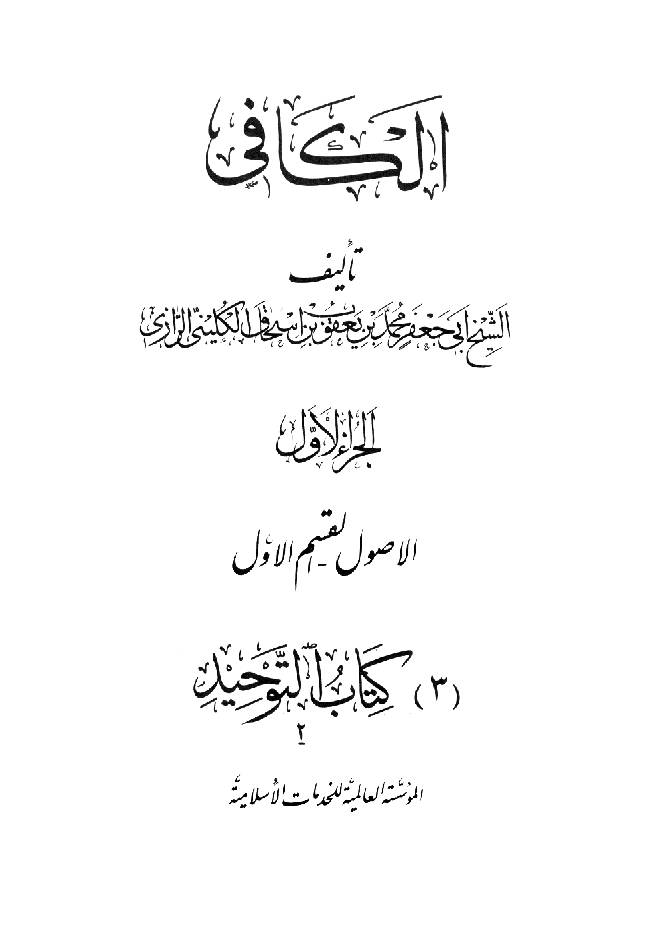 الكافي
تأليف
الشيخ أبي جعفر محمد بن يعقوب بن إسحاق الكليني الرازي
الجزء الأول
الاصول - القسم الاول
(٣) كتاب التوحيد
٢
المؤسسة العالمية للخدمات الأسلامية